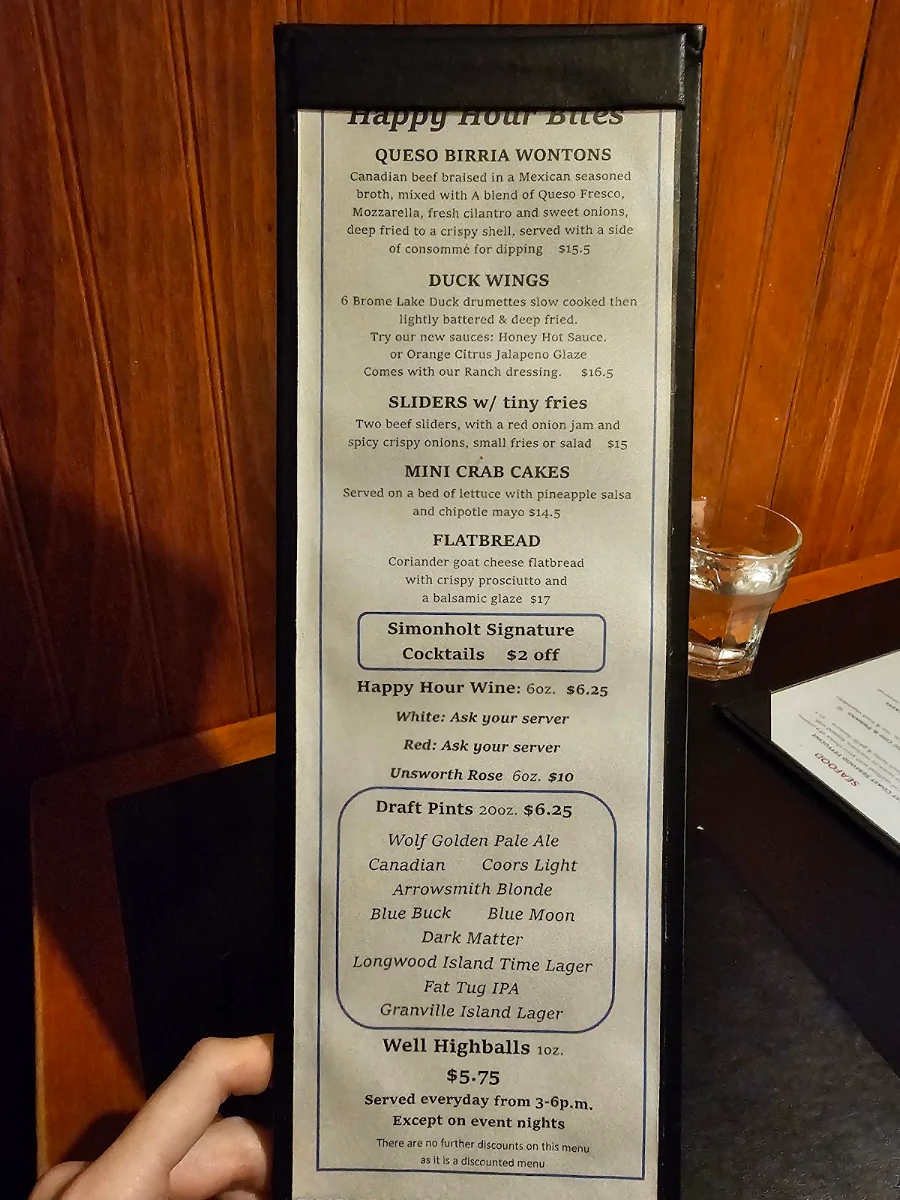 Happy Hour Bites
QUESO BIRRIA WONTONS
Canadian beef braised in a Mexican seasoned
broth, mixed with A blend of Queso Fresco,
Mozzarella, fresh cilantro and sweet onions,
deep fried to a crispy shell, served with a side
of consommé for dipping $15.5
DUCK WINGS
6 Brome Lake Duck drumettes slow cooked then
lightly battered & deep fried.
Try our new sauces: Honey Hot Sauce.
or Orange Citrus Jalapeno Glaze
Comes with our Ranch dressing. $16.5
SLIDERS w/ tiny fries
Two beef sliders, with a red onion jam and
spicy crispy onions, small fries or salad $15
MINI CRAB CAKES
Served on a bed of lettuce with pineapple salsa
and chipotle mayo $14.5
FLATBREAD
Coriander goat cheese flatbread
with crispy prosciutto and
a balsamic glaze $17
Simonholt Signature
Cocktails $2 off
Happy Hour Wine: 6oz. $6.25
White: Ask your server
Red: Ask your server
Unsworth Rose 6oz. $10
Draft Pints 20oz. $6.25
Wolf Golden Pale Ale
Canadian Coors Light
Arrowsmith Blonde
Blue Buck Blue Moon
Dark Matter
Longwood Island Time Lager
Fat Tug IPA
Granville Island Lager
Well Highballs 1oz.
$5.75
Served everyday from 3-6p.m.
Except on event nights
There are no further discounts on this menu
as it is a discounted menu
SEAFOOD